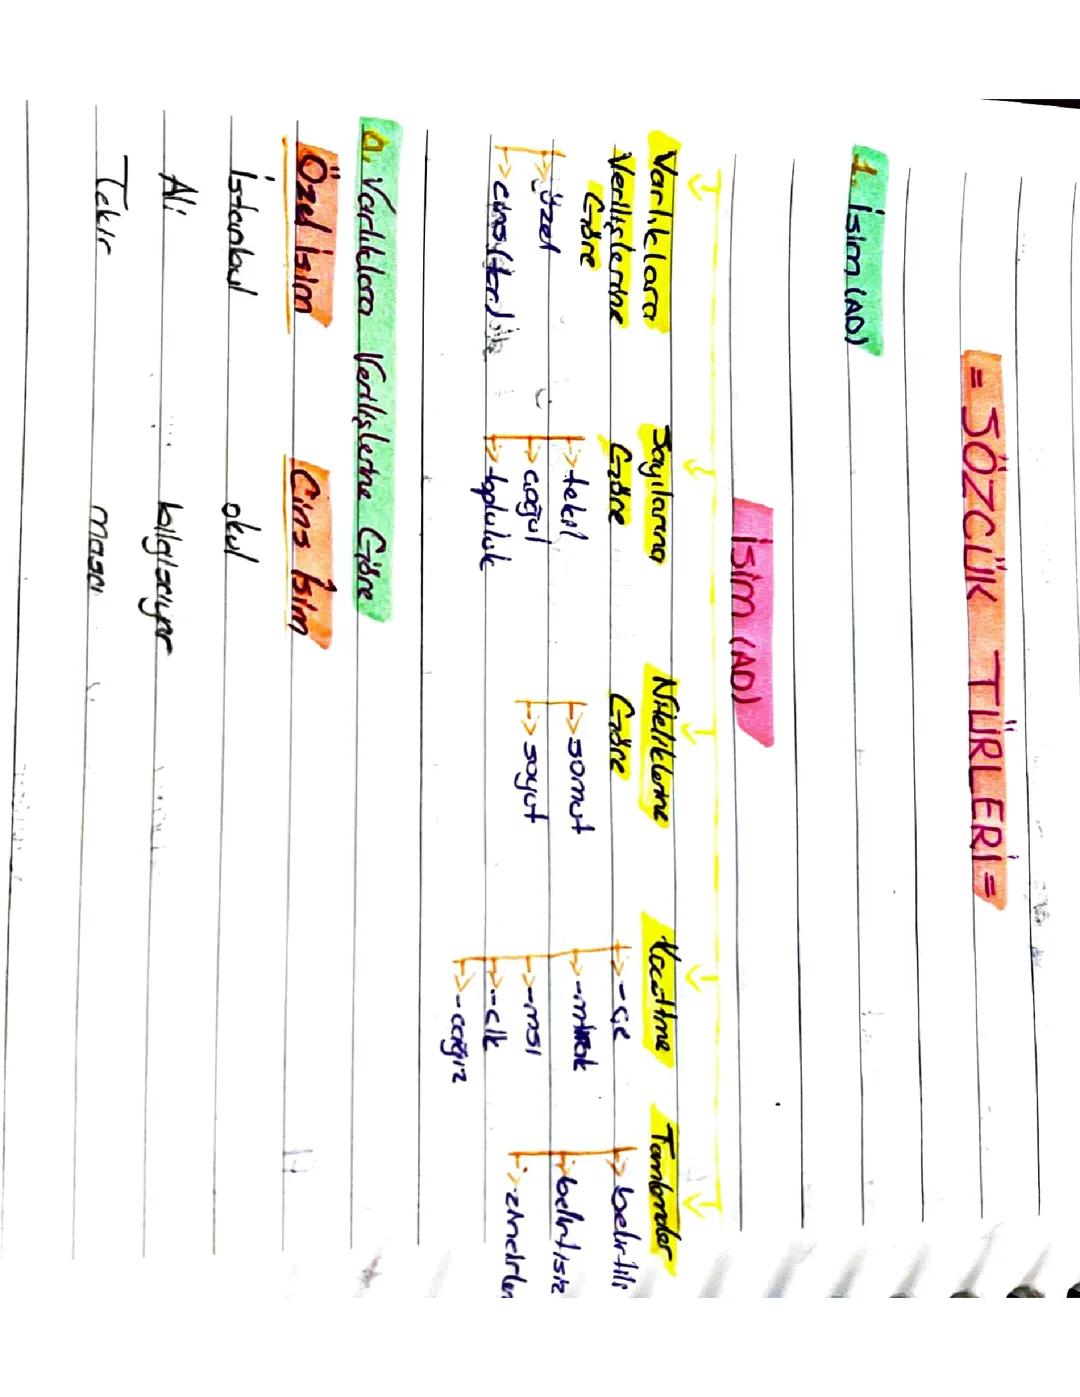 = SÖZCÜK TÜRLERİ =
1. İsim (AD)
İsim (AD)
Varlıklara Verilişlerine Göre
→ özel
→ cins (tür)
Sayılarına Göre
→ tekil
→ çoğul
→ topluluk
Niteliklerine Göre
→ somut
→ soyut
Küçültme
→ -ce
→ -mtrak
→ -msı
→ -cık
→ -cağız
Tamlamalar
→ belirtili
→ belirtisiz
→ zincirleme
a. Varlıklara Verilişlerine Göre
Özel İsim Cins İsim
İstanbul okul
Ali bilgisayar
Tekir masa